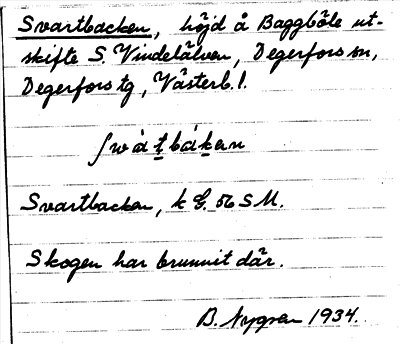 Svartbacken, höjd å Baggböle ut-
skifte S. Vindelälven, Degerfors sn,
Degerfors tg, Västerb. l.
Svartbacken, k
Skogen har brunnit där.
B. Nygren 1934.